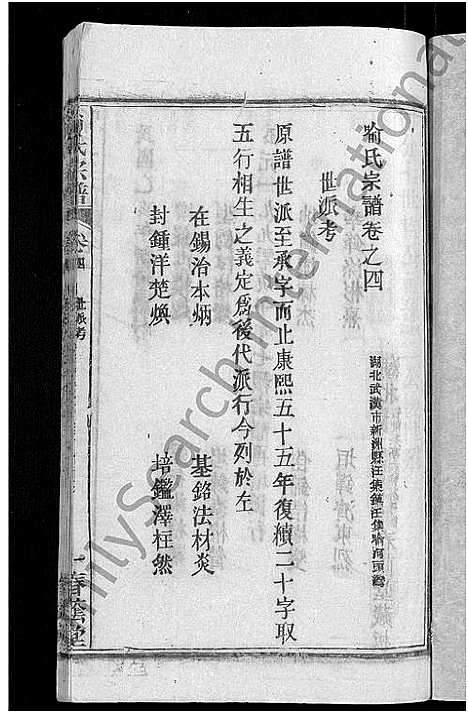 喻氏宗譜卷之四
湖北武漢市新洲縣汪集鎮汪集喻河頭灣
世派考
原譜世派至承字而止康熙五十五年復續二十字取
五行相生之義定為後代派行今列於左
在錫治本炳
基銘法材炎
封鍾洋楚煥
培鑑澤枉然
喻氏宗譜
卷四
世派考
一
FamilySearch International